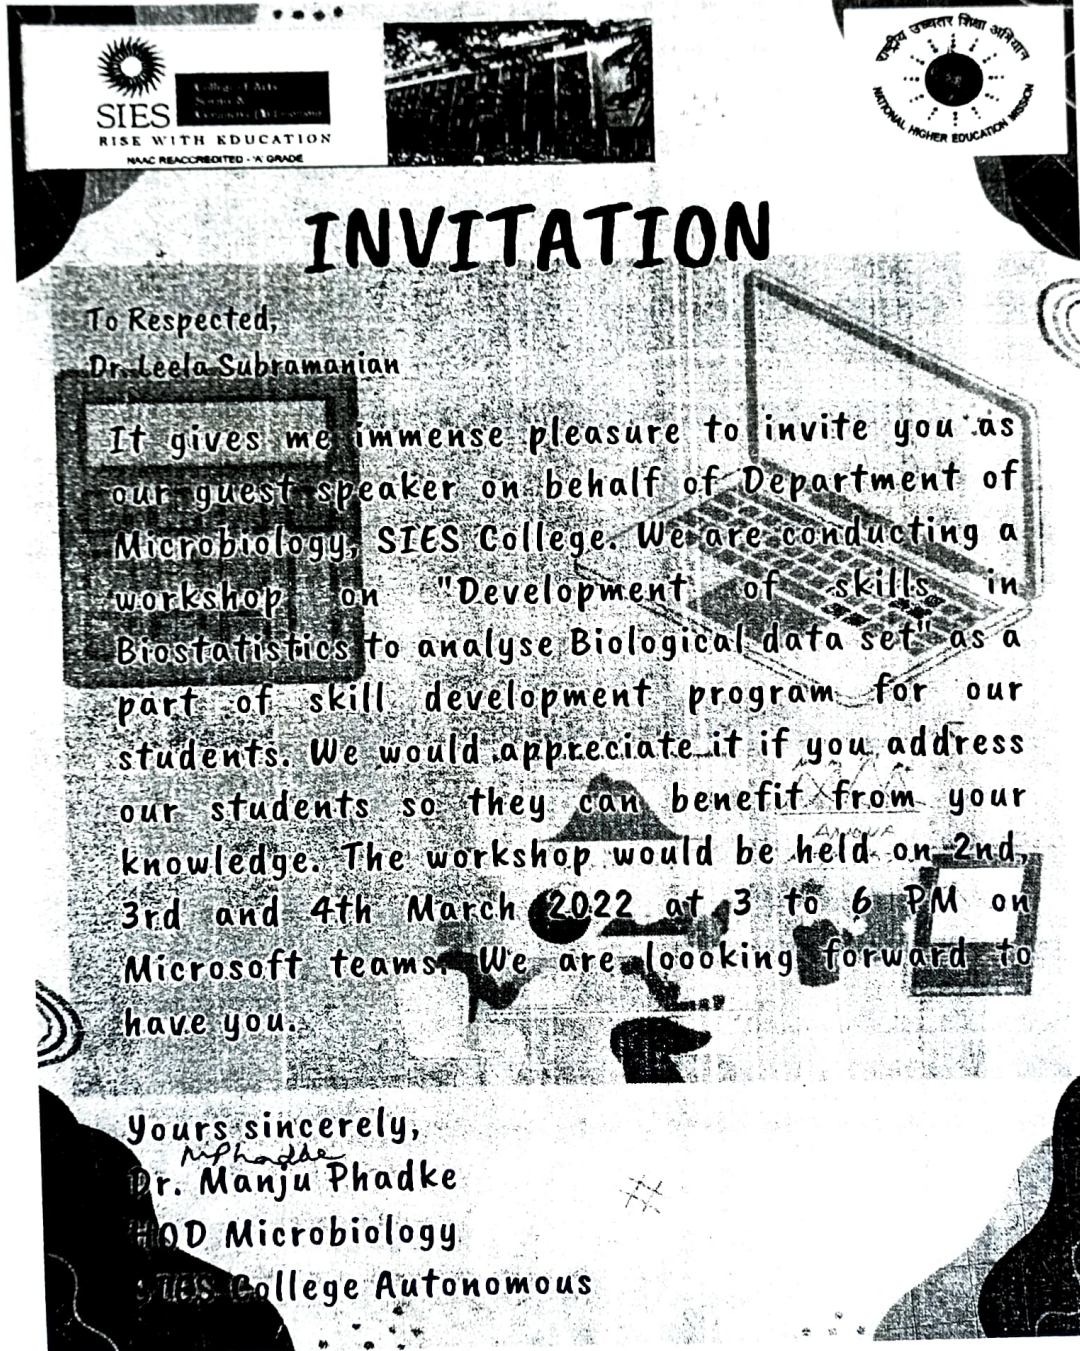 SIES
College of Arts
Science &
Commerce (Autonomous)
RISE WITH EDUCATION
NAAC REACCREDITED - 'A' GRADE
राष्ट्रीय उच्चतर शिक्षा अभियान
NATIONAL HIGHER EDUCATION MISSION
INVITATION
To Respected,
Dr. Leela Subramanian
It gives me immense pleasure to invite you as
our guest speaker on behalf of Department of
Microbiology, SIES College. We are conducting a
workshop on "Development of skills in
Biostatistics to analyse Biological data set" as a
part of skill development program for our
students. We would appreciate it if you address
our students so they can benefit from your
knowledge. The workshop would be held on 2nd,
ANOVA
3rd and 4th March 2022 at 3 to 6 PM on
Microsoft teams. We are loooking forward to
have you.
Yours sincerely,
MPhadke
Dr. Manju Phadke
HOD Microbiology
SIES College Autonomous